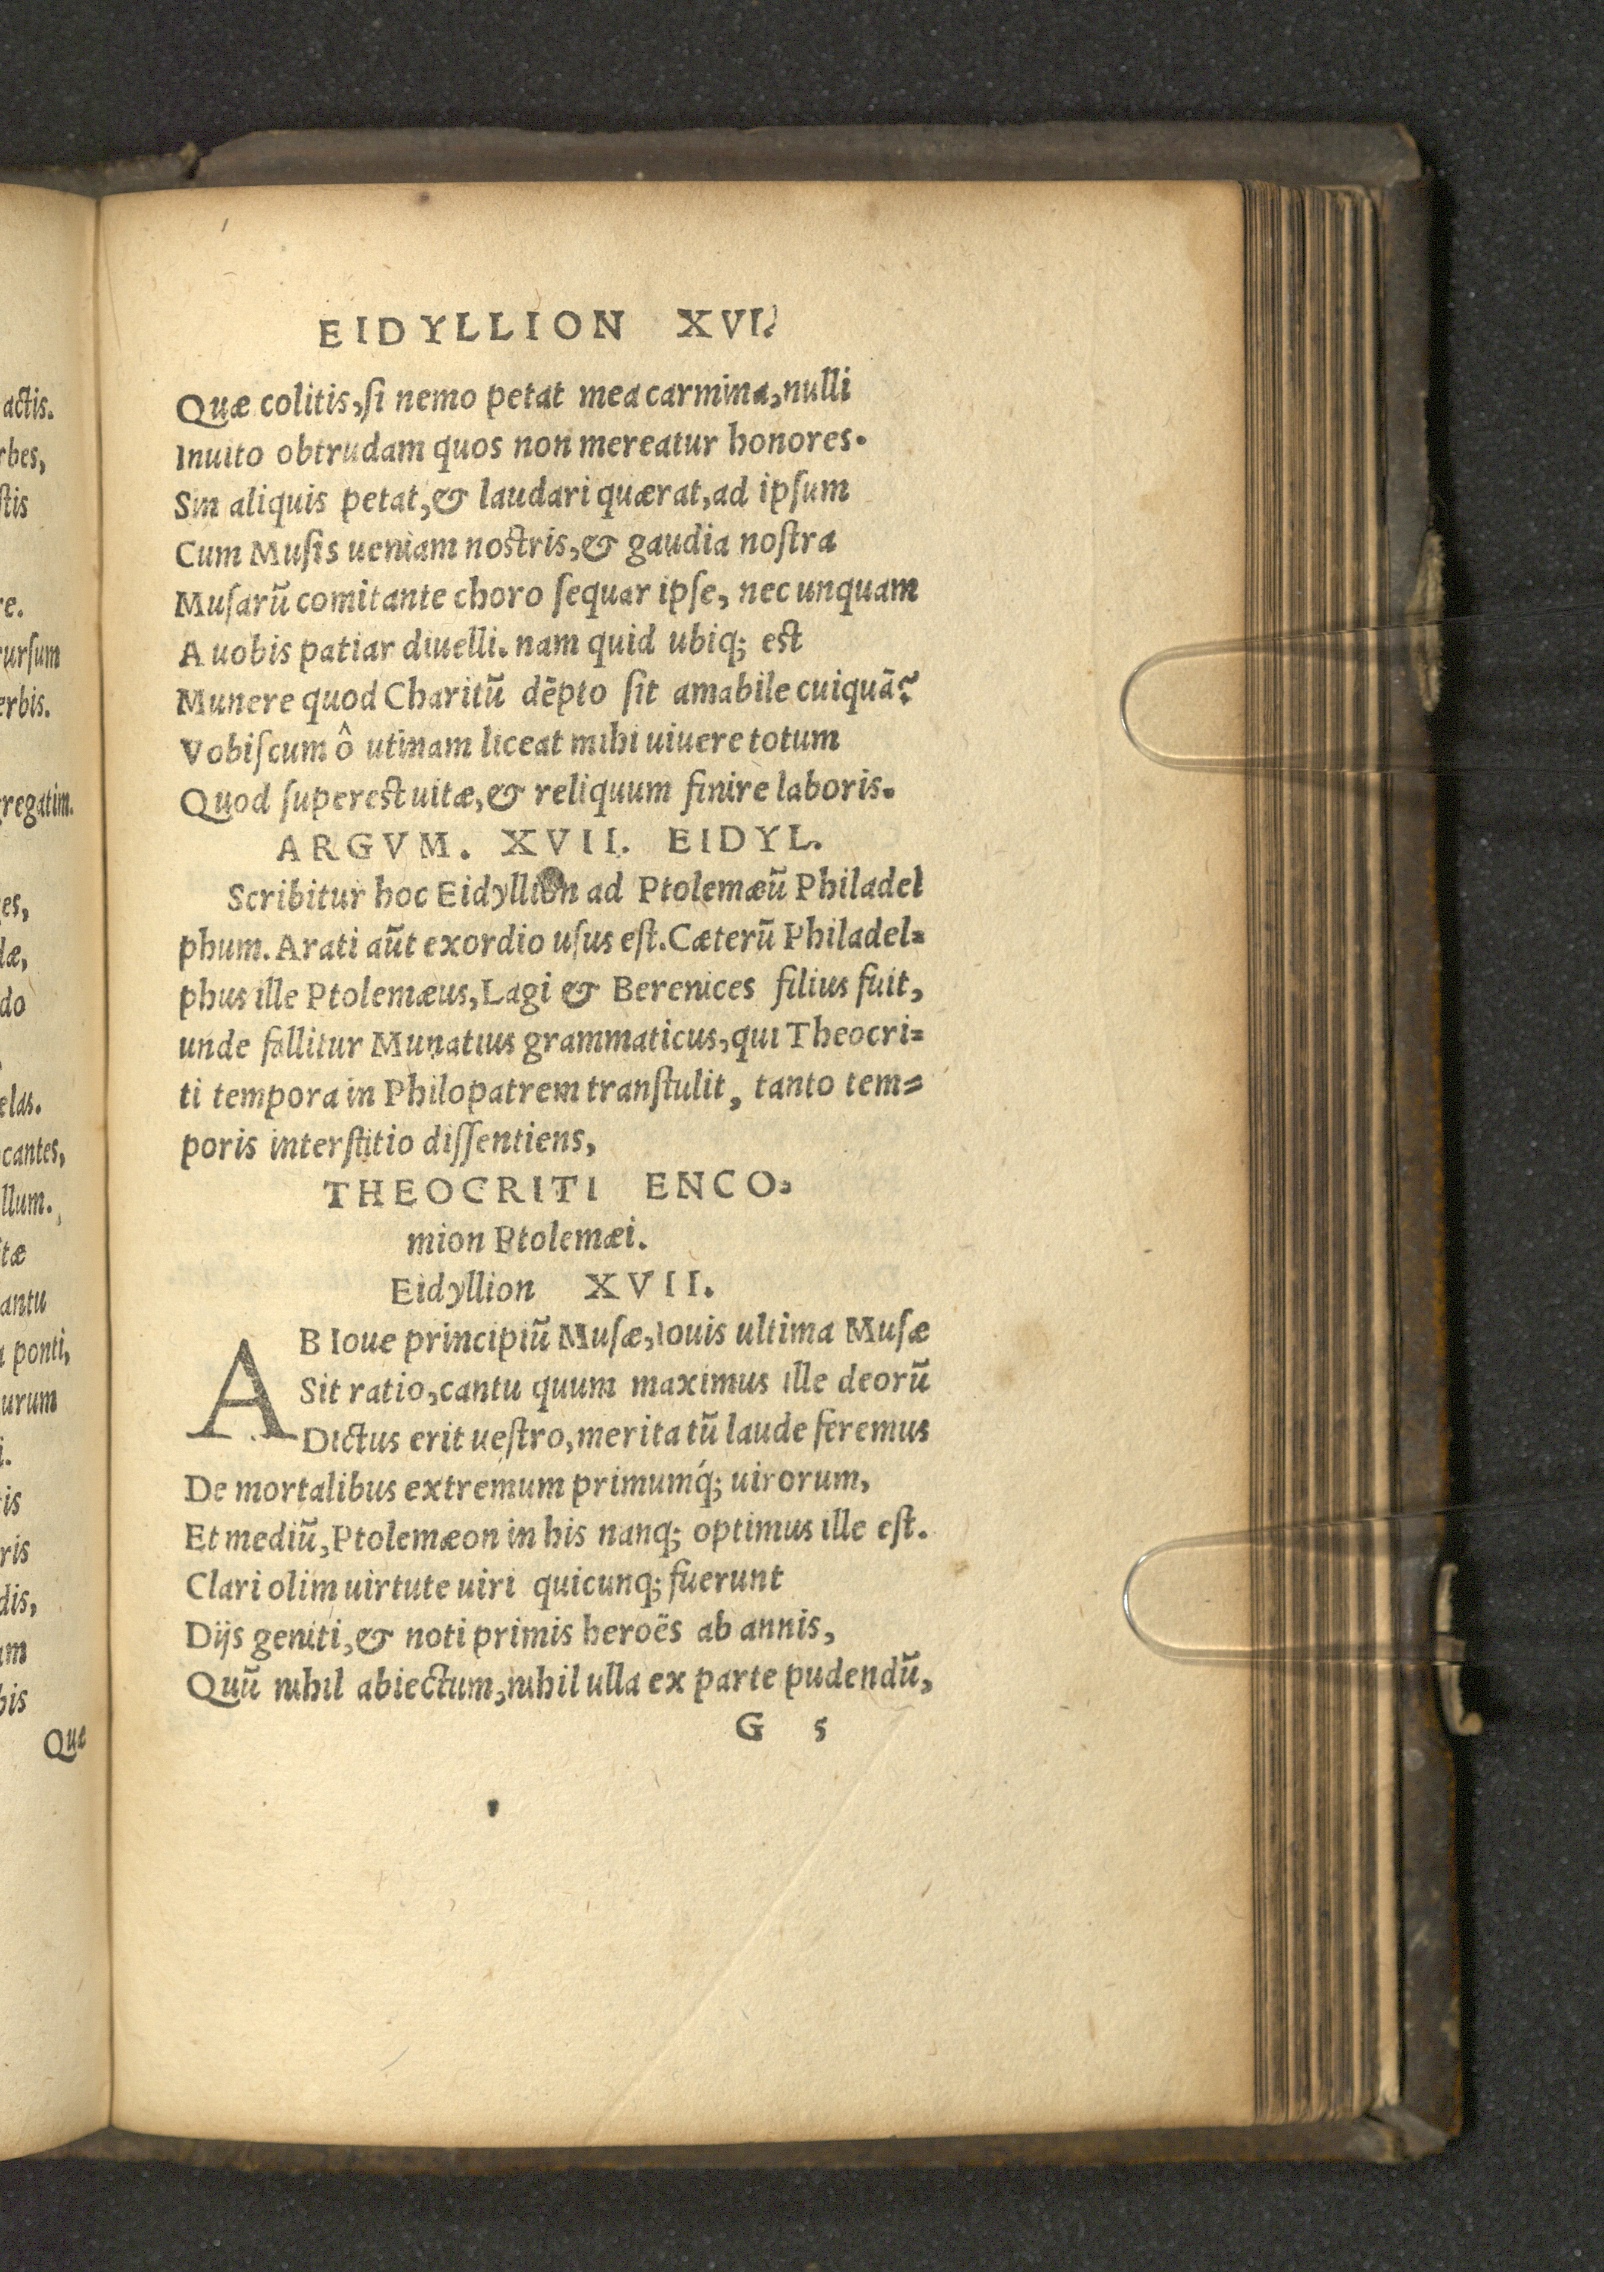 actis.
rbes,
stis
re.
rursum
erbis.
gregatim.
es,
dæ,
do
elas.
cantes,
llum.
tæ
antu
a ponti,
urum
i.
is
ris
dis,
um
bis
Quæ
EIDYLLION XVI.
Quæ colitis, ſi nemo petat mea carmina, nulli
Inuito obtrudam quos non mereatur honores.
Sin aliquis petat, & laudari quærat, ad ipſum
Cum Muſis ueniam noſtris, & gaudia noſtra
Muſarū comitante choro ſequar ipſe, nec unquam
A uobis patiar diuelli. nam quid ubiq; eſt
Munere quod Charitū dēpto ſit amabile cuiquā?
Vobiſcum ô utinam liceat mihi uiuere totum
Quod ſupereſt uitæ, & reliquum finire laboris.
ARGVM. XVII. EIDYL.
Scribitur hoc Eidyllion ad Ptolemæū Philadel
phum. Arati aūt exordio uſus eſt. Cæterū Philadel-
phus ille Ptolemæus, Lagi & Berenices filius fuit,
unde fallitur Munatius grammaticus, qui Theocri-
ti tempora in Philopatrem tranſtulit, tanto tem-
poris interſtitio diſſentiens,
THEOCRITI ENCO-
mion Ptolemæi.
Eidyllion XVII.
AB Ioue principiū Muſæ, Iouis ultima Muſæ
Sit ratio, cantu quum maximus ille deorū
Dictus erit ueſtro, merita tū laude feremus
De mortalibus extremum primumq́; uirorum,
Et mediū, Ptolemæon in his nanq; optimus ille eſt.
Clari olim uirtute uiri quicunq; fuerunt
Dijs geniti, & noti primis heroës ab annis,
Quū nihil abiectum, nihil ulla ex parte pudendū,
G 5